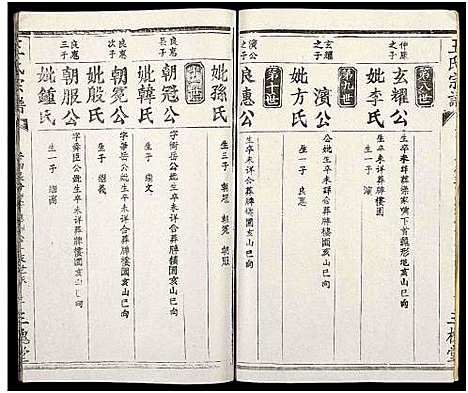 王氏宗譜
第八世
仲廉之子
玄耀公
妣李氏
生一子 濱
第九世
玄耀之子
濱公
妣方氏
公妣生卒未詳合葬牌樓園亥山巳向
生一子 良惠
第十世
濱公之子
良惠公
生卒未詳葬牌樓園亥山巳向
妣孫氏
生三子 朝冠 朝冕 朝服
良惠長子
朝冠公
妣韓氏
字衡岳公妣生卒未詳合葬牌樓園亥山巳向
生一子 繼文
良惠次子
朝冕公
妣殷氏
字華岳公妣生卒未詳合葬牌樓園亥山巳向
生一子 繼義
良惠三子
朝服公
妣鍾氏
字舜臣公妣生卒未詳合葬牌樓園亥山巳向
生一子
王氏宗譜
三槐堂